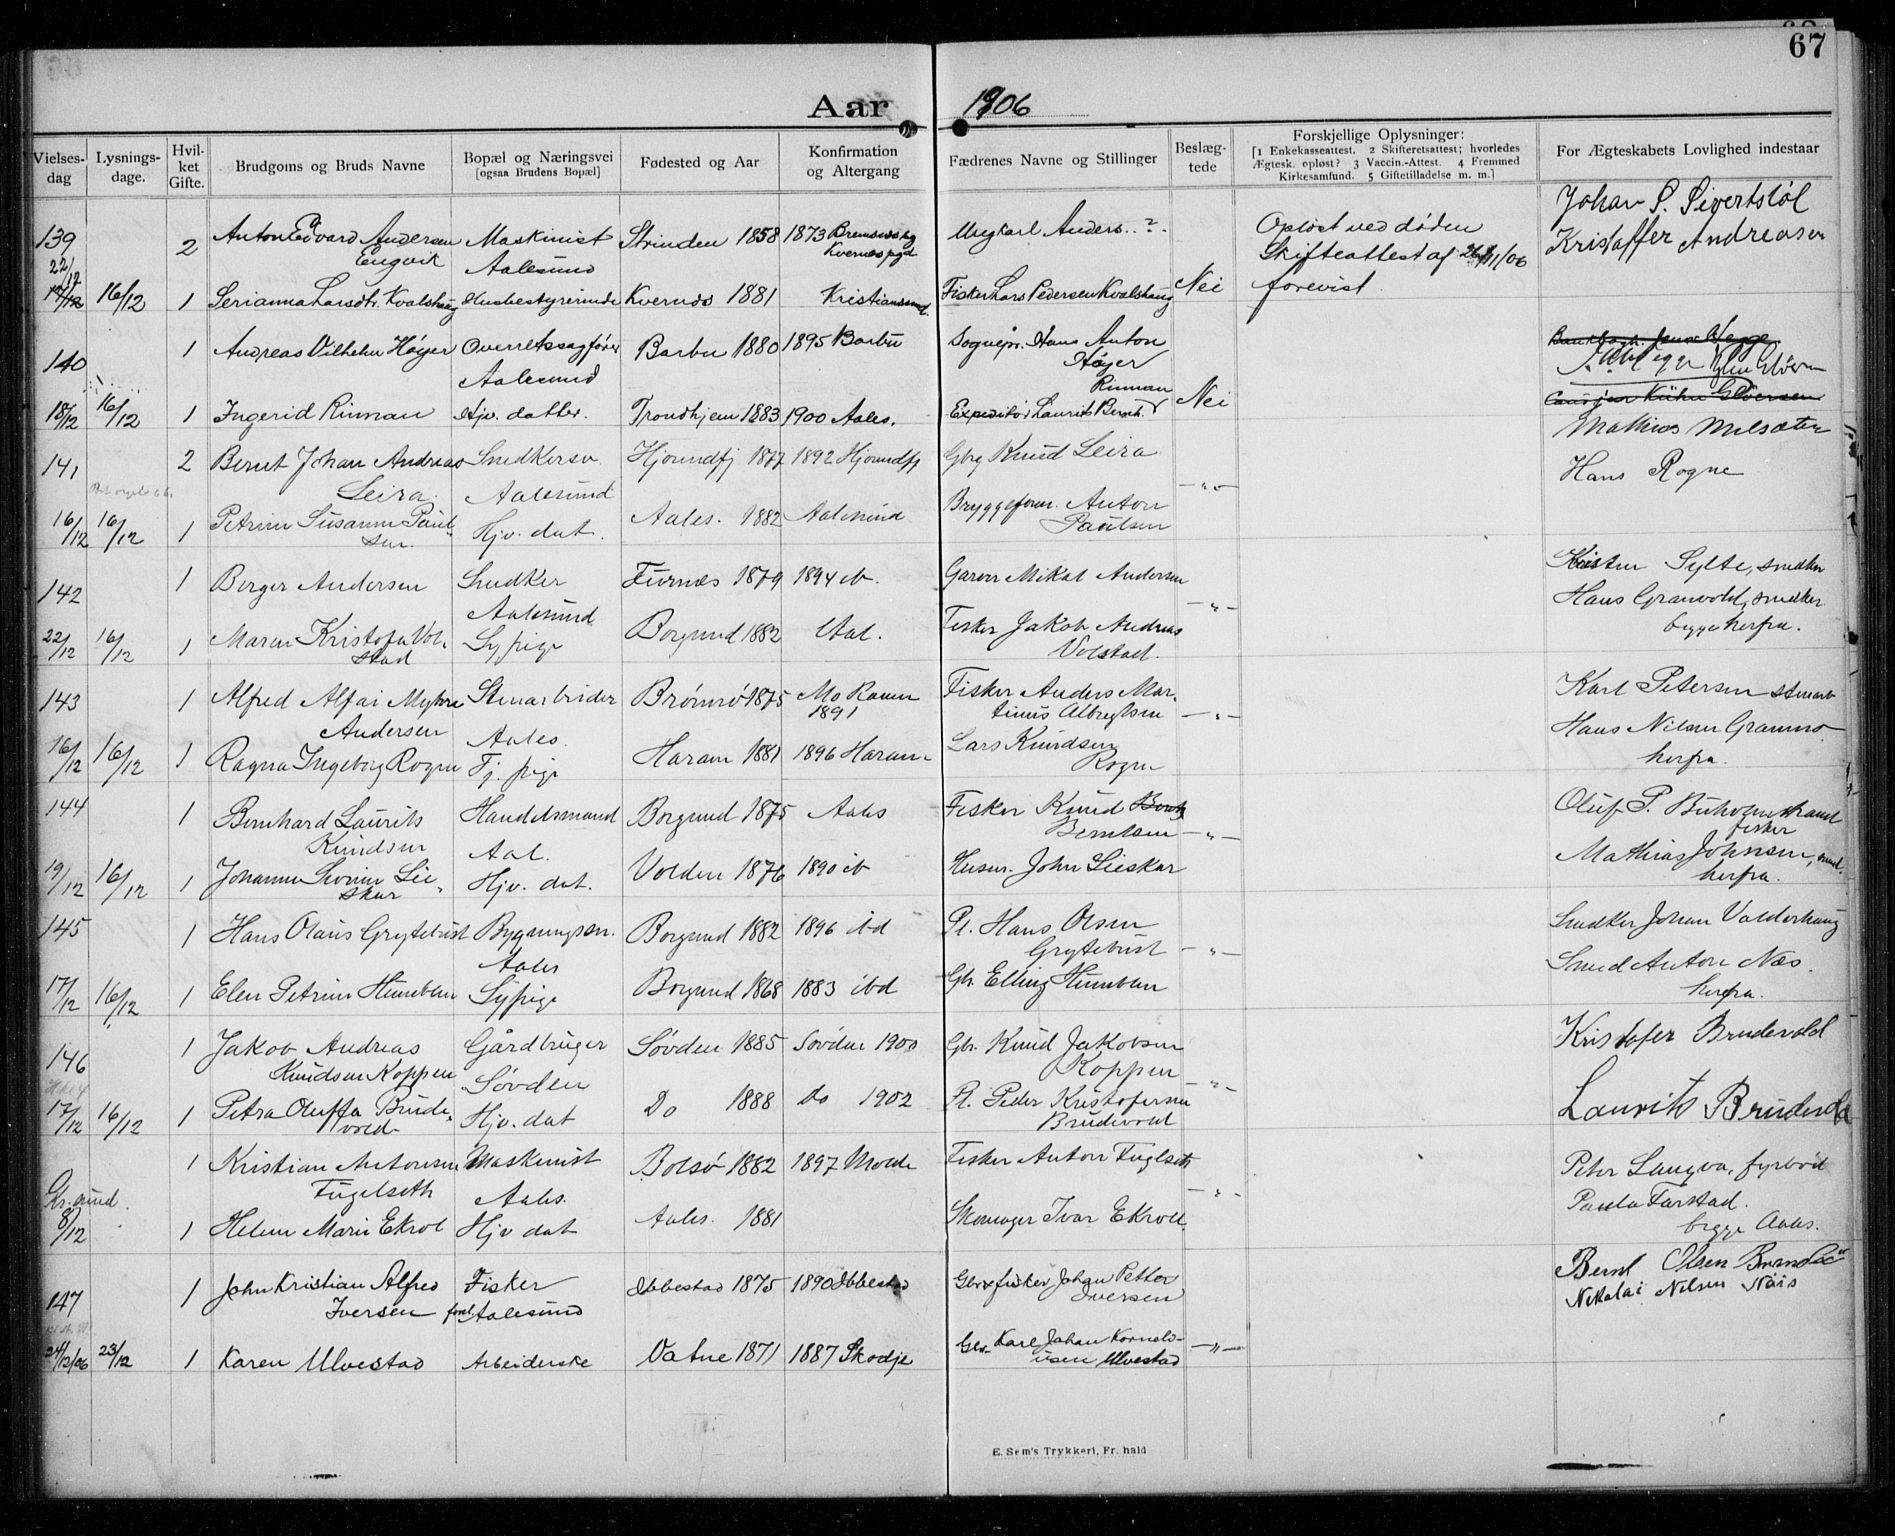 67
Aar 1906
Vielses-dag
Lysnings-dage.
Hvil-ket Gifte.
Brudgoms og Bruds Navne
Bopæl og Næringsvei [ogsaa Brudens Bopæl]
Fødested og Aar
Konfirmation og Altergang
Fædrenes Navne og Stillinger
Beslæg-tede
Forskjellige Oplysninger: [1 Enkekasseattest. 2 Skifteretsattest; hvorledes Ægtesk. opløst? 3 Vaccin.-Attest. 4 Fremmed Kirkesamfund. 5 Giftetilladelse m. m.]
For Ægteskabets Lovlighed indestaar
139 2 Anton Edvard Andersen Maskinist Strinden 1858 1873 Bremsnes Ungkarl Anders..?. Opløst ved døden Johan S. Sivertstøl
22/12 Engvik Aalesund Kvernæs pgd Skifteattest af 26/11/06 Kristoffer Andreasen
16/12 1 Serianna Larsdtr. Kvalshaug Husbestyrerinde Kvernæs 1881 Kristianssund. Fisker Lars Pedersen Kvalshaug Nei forevist.
140 1 Andreas Vilhelm Høyer Overretssagfører Barbu 1880 1895 Barbu Sognepr. Hans Anton
Aalesund Høyer
Rinnan
18/12 16/12 1 Ingerid Rinnan Hjv. datter. Trondhjem 1883 1900 Aales. Expeditør Laurits Bernh. Nei
Mathias Melsæter
141 2 Bernt Johan Andreas Snedkersv. Hjørundfj 1877 1892 Hjørundfj Gbr Knud Leira Hans Rogne
Leira Aalesund -"-
16/12 16/12 1 Petrine Susanne Paul- Hjv. dat. Aales. 1882 Aalesund Bryggeform. Anton
sen. Paulsen
142 1 Berger Andersen Snedker Furnæs 1879 1894 ib. Garver Mikal Andersen Sylte, snedker
Aalesund -"- Hans Granvold, snedker
22/12 16/12 1 Maren Kristofa Vol- Sypige Borgund 1882 Aal. Fisker Jakob Andreas begge herfra.
stad Volstad.
143 1 Alfred Alfai Myhre Stenarbeider Brönnö 1875 Mo Ranen Fisker Anders Mar- Karl Petersen stenarb
Andersen Aales. 1891 tinus Albregtsen -"- Hans Nilsen Grammo
16/12 16/12 1 Ragna Ingeborg Rogne Tj. pige Haram 1881 1896 Haram Lars Knudsen herfra.
Rogne
144 1 Bernhard Laurits Handelsmand Borgund 1875 Aales Fisker Knud Oluf P.
Knudsen Aal. Berntsen -"- fisker
19/12 16/12 1 Johanne Lie- Hjv. dat. Volden 1876 1890 ib Husm. John Lieskar Mathias Johnsen,
skar herfra.
145 1 Hans Olaus Grytebust Bygningssn. Borgund 1882 1896 ibd Pl. Hans Olsen Snedker Johan Valderhaug
Aales Grytebust -"- Smed Anton Næs.
17/12 16/12 1 Elen Petrine Humblen Sypige Borgund 1868 1883 ibd Gbr. Elling Humblen herfra.
146 1 Jakob Andreas Gårdbruger Søvden 1885 Søvden 1900 Gbr. Knud Jakobsen Kristofer Brudevold
Knudsen Koppen Søvden Koppen -"-
17/12 16/12 1 Petra Oluffa Brude- Hjv. dat Do 1888 Do 1902 Pl. Peder Kristofersen Laurits Brudevold
vold Brudevold
1 Kristian Antonsen Maskinist Bolsø 1882 1897 Molde Fisker Anton Fugelseth Peter Langva, fyrbød
Kr.sund. Fugelseth Aales. -"- Paula Farstad.
8/12 1 Helene Marie Ekrol Hjv dat Aales. 1881 Skomager Ivar Ekroll. begge Aales.
147 1 John Kristian Alfred Fisker Ibbestad 1875 1890 Ibbestad Gbr x fisker Johan Petter Bernt Olsen
Iversen Aalesund Iversen Nikolai Nilsen
24/12/06 23/12 1 Karen Ulvestad Arbeiderske Vatne 1871 1887 Skodje Gbr. Karl Johan Kornels- -"-
usen Ulvestad
E. Sem's Trykkeri, Fr. hald